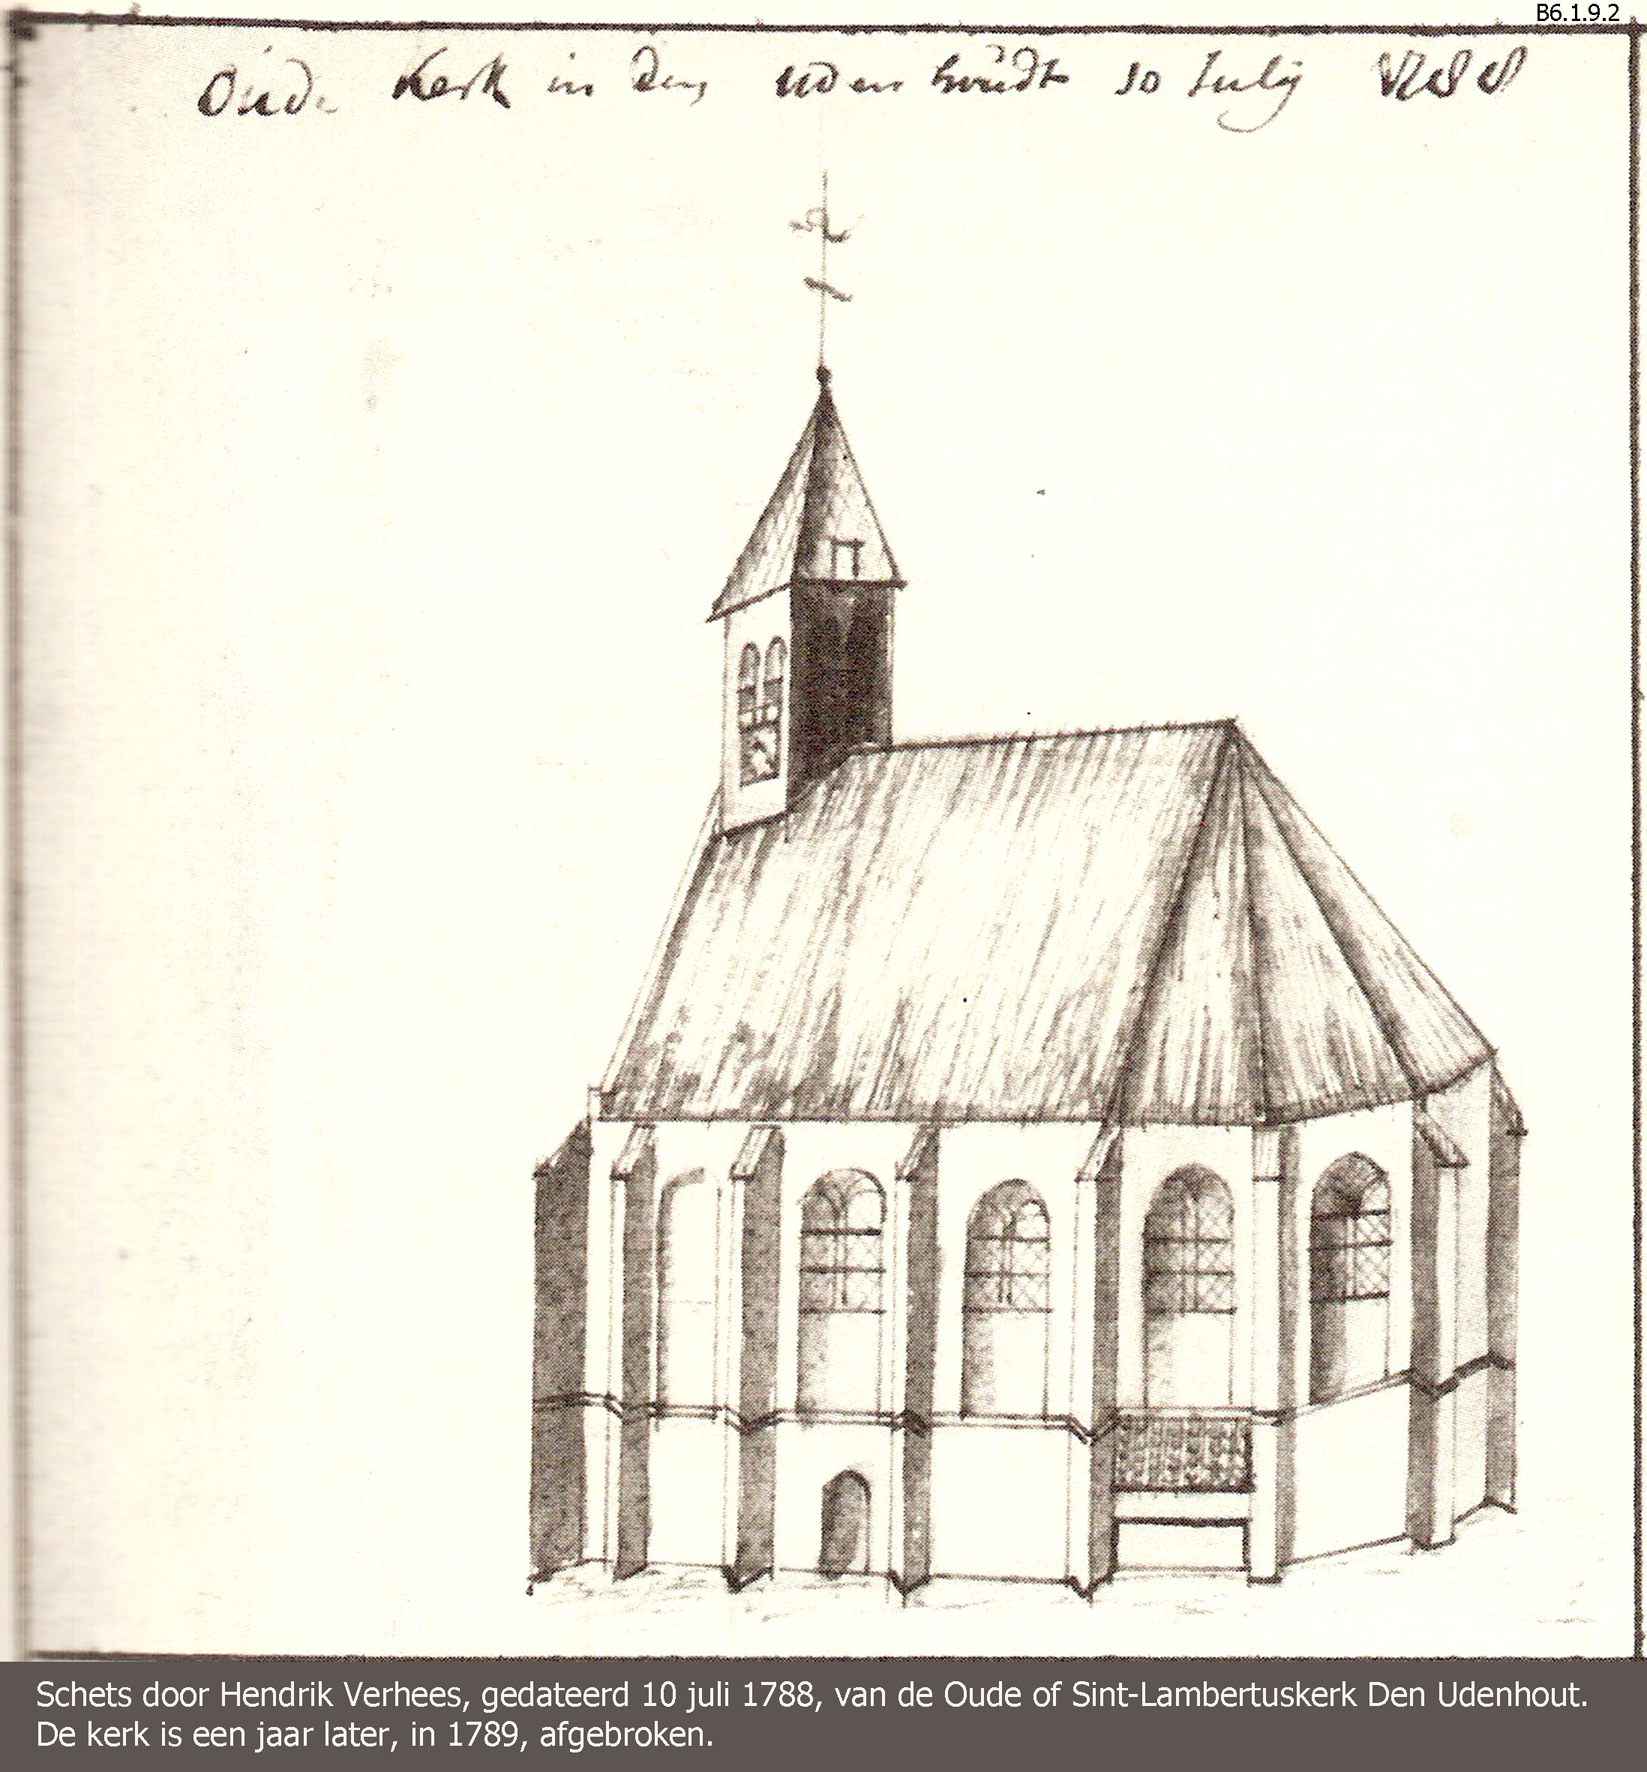 B6.1.9.2
Oude Kerk in den uden houdt 10 Julij 1788
Schets door Hendrik Verhees, gedateerd 10 juli 1788, van de Oude of Sint-Lambertuskerk Den Udenhout.
De kerk is een jaar later, in 1789, afgebroken.